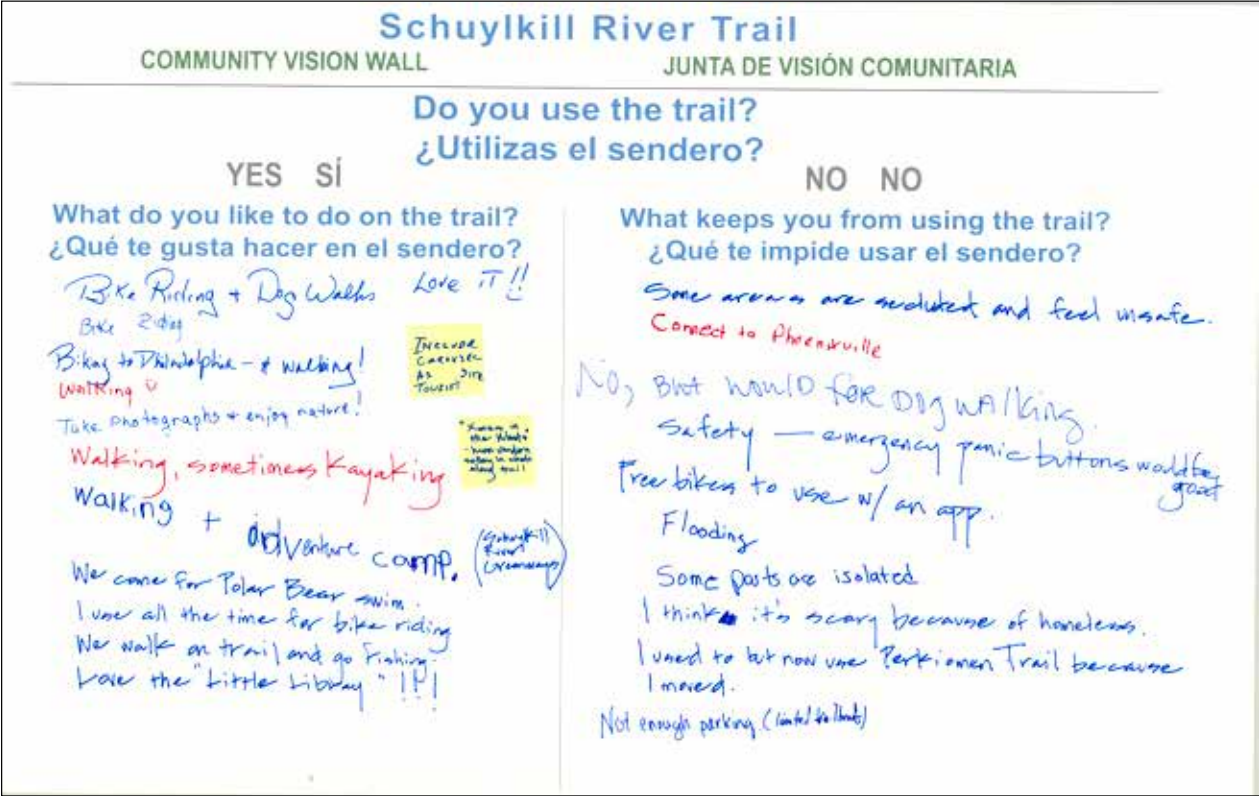 Schuylkill River Trail
COMMUNITY VISION WALL
JUNTA DE VISIÓN COMUNITARIA
Do you use the trail?
¿Utilizas el sendero?
YES SÍ
What do you like to do on the trail?
¿Qué te gusta hacer en el sendero?
Bike Riding + Dog Walks
Love iT!!
Bike
Biking to Philadelphia - + walking!
Walking
Take photographs + enjoy nature!
Walking, sometimes Kayaking
Walking + adventure camp.
(Schuylkill
River
Greenways)
We come for Polar Bear swim.
I use all the time for bike riding
We walk on trail and go fishing.
Love the "Little Library" !!!
Include
Carousel
As
Tourist
along trail
NO NO
What keeps you from using the trail?
¿Qué te impide usar el sendero?
Some areas are secluded and feel unsafe.
Connect to Phoenixville
No, But would for Dog walking.
Safety — emergency panic buttons would be
good
Free bikes to use w/ an app.
Flooding
Some parts are isolated
I think it's scary because of homeless.
I used to but now use Perkiomen Trail because
I moved.
Not enough parking (limited